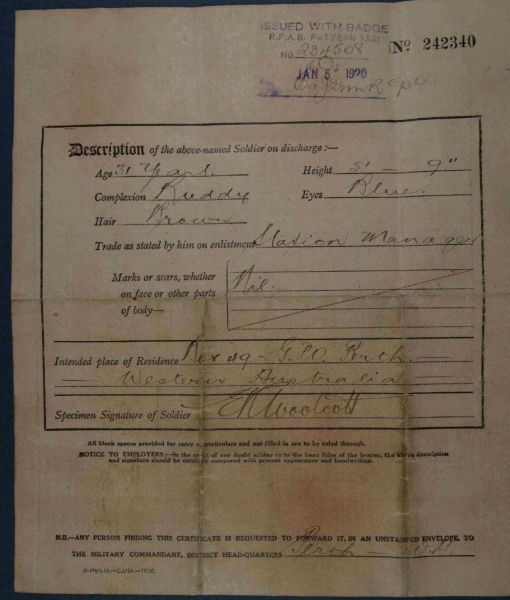 ISSUED WITH BADGE
R.F.A.S. PATTERN 1521
No. 234508
JAN 5 1920
No 242340
Description of the above-named Soldier on discharge :—
Age 31 Years. Height 5' - 9"
Complexion Ruddy Eyes Blue.
Hair Brown
Trade as stated by him on enlistment Station Manager
Marks or scars, whether
on face or other parts
of body—
Nil.
Intended place of Residence Box 49 - G.P.O. Perth.
Western Australia
Specimen Signature of Soldier Woolcott
All blank spaces provided for entry of particulars and not filled in are to be ruled through.
NOTICE TO EMPLOYERS:—In the event of any doubt arising as to the bona fides of the bearer, the above description
and signature should be carefully compared with present appearance and handwriting.
N.B.—ANY PERSON FINDING THIS CERTIFICATE IS REQUESTED TO FORWARD IT, IN AN UNSTAMPED ENVELOPE, TO
THE MILITARY COMMANDANT, DISTRICT HEAD-QUARTERS Perth - W.A.